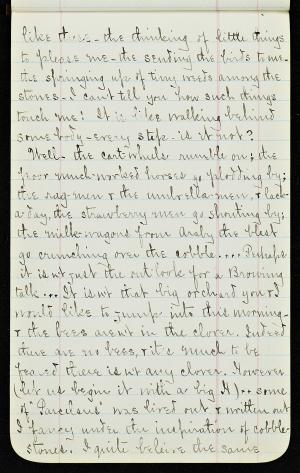 like this - the thinking of little things
to please me - the sending the birds to me -
the springing up of tiny weeds among the
stones - I can't tell you how such things
touch me! It is like walking behind
somebody - every step - is it not?
Well - the cart wheels rumble on; the
poor much-worked horses go plodding by;
the rag-men & the umbrella-men, & lack-
a-day, the strawberry men go shouting by;
the milk-wagons from Araby the blest
go crunching over the cobble.... Perhaps
it isn't just the outlook for a Browning
talk... It isn't that big orchard you & I
would like to jump into this morning -
& the bees aren't in the clover. Indeed
there are no bees, & it's much to be
feared there isn't any clover. However
(let us begin it with a big H) .. some
of "Paracelsus" was lived out & written out
I fancy under the inspiration of cobble-
stones. I quite beleive the same